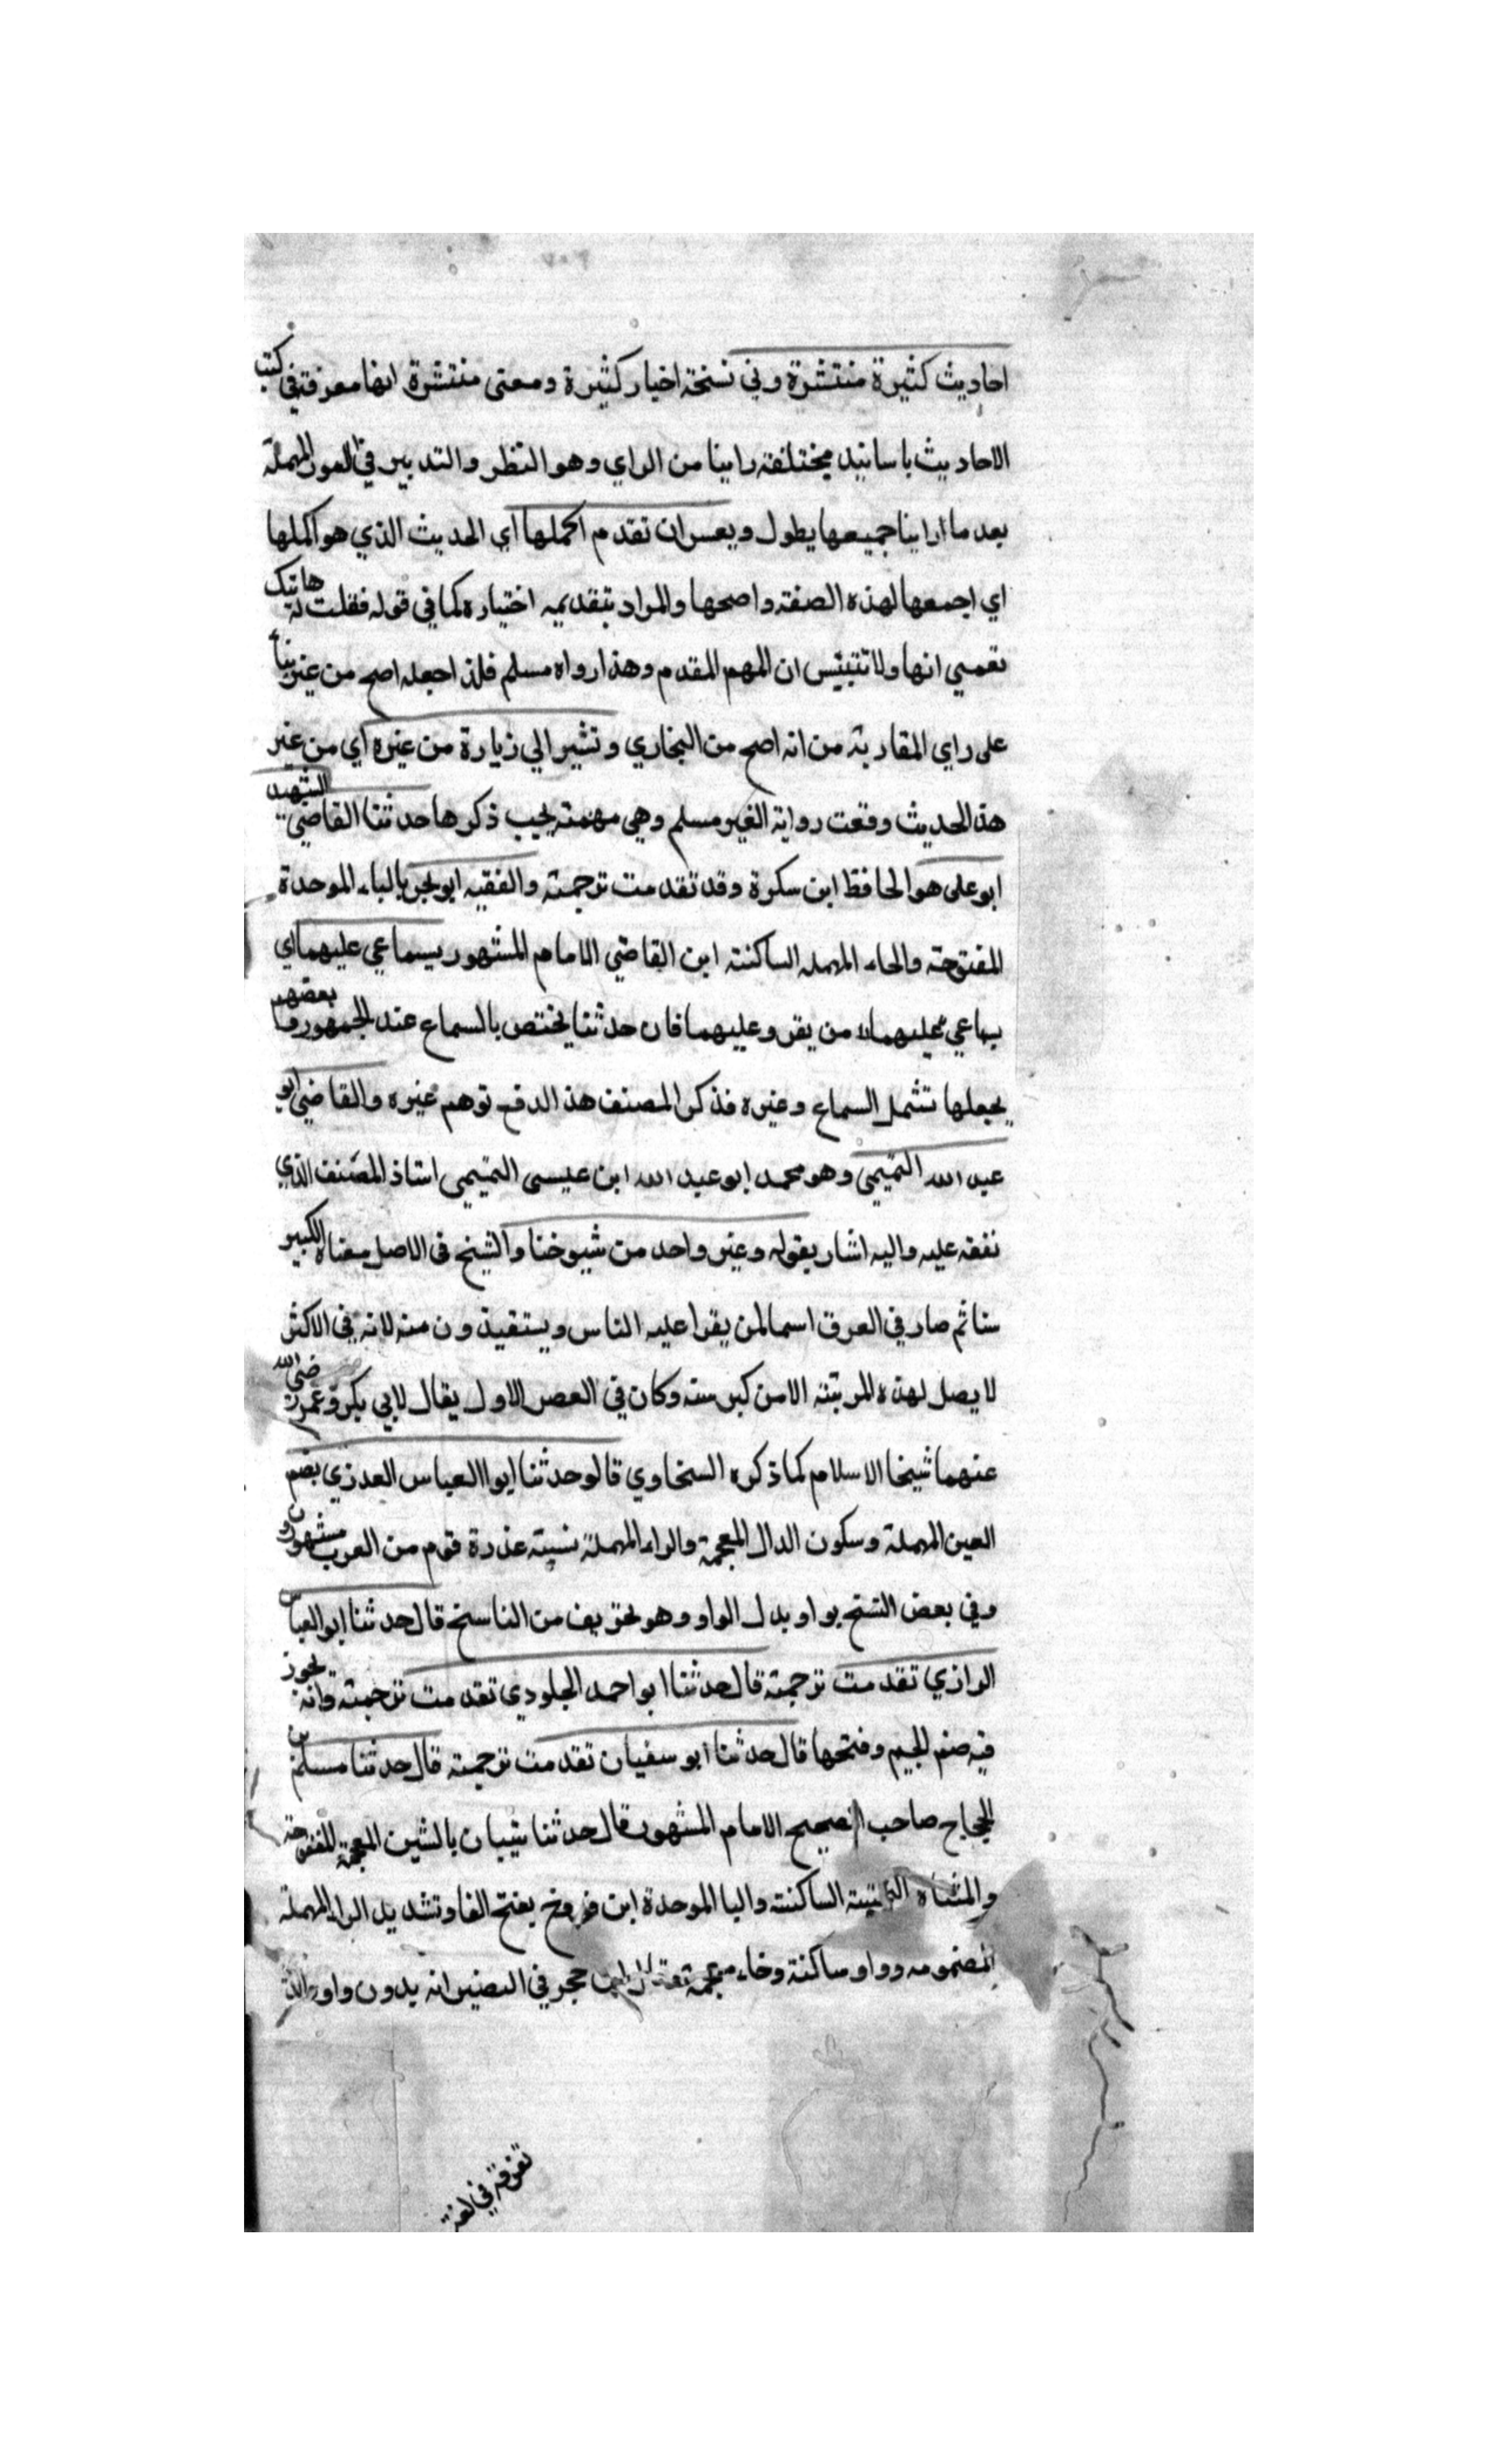 احاديث كثيرة منتشرة وفي نسخة اخبار كثيرة ومعنى منتشرة انها معرفة في كتب
الاحاديث باسانيد مختلفة راينا من الراي وهو النظر والتدبير في المهملة
بعد ما راينا جميعها يطول ويعسر ان نقدم اكملها اي الحديث الذي هو اكملها
اي اجمعها لهذه الصفة واصحها والمراد بتقديمه اختياره كما في قوله فقلت له هاتيك
نعمي انها ولا تبتئس ان المهم المقدم وهذا رواه مسلم فلذا جعله اصح من غيره بناء
على راي المغاربة من انه اصح من البخاري ونشير الي زيارة من غيره اي من غير
هذا الحديث وقعت رواية الغير مسلم وهي مهمة يجب ذكرها حدثنا القاضي الشهيد
ابو على هو الحافظ ابن سكرة وقد تقدمت ترجمته والفقيه ابو بحر بالباء الموحدة
المفتوحة والحاء المهمله الساكنة ابن القاضي الامام المشهور بسماعي عليهما اي
بسماعي عليهما لا من يقروعليهما فان حدثنا يختص بالسماع عند الجمهور وبعضهم
يجعلها تشمل السماع وغيره فذكر المصنف هذا لدفع توهم غيره والقاضي ابو
عبد الله التميمي وهو محمد ابو عبد الله ابن عيسى التميمي استاذ المصنف الذي
تفقه عليه واليه اشار بقوله وغير واحد من شيوخنا والشيخ في الاصل معناه الكبير
سنا ثم صار في العرف اسما لمن يقرا عليه الناس ويستفيدون منه لانه في الاكثر
لا يصل لهذه المرتبة الا من كبر سنه وكان في العصر الاول يقال لابي بكر وعمر رضي الله
عنهما شيخا الاسلام كما ذكره السخاوي قالو حدثنا ابو العباس العذري بضم
العين المهملة وسكون الدال المعجمة والراء المهملة نسبة عذرة قوم من العرب مشهورون
وفي بعض النسخ بواو بدل الواو وهو تحريف من الناسخ قال حدثنا ابو العباس
الرازي تقدمت ترجمته قال حدثنا ابو احمد الجلودي تقدمت ترجمته وانه يجوز
فيه ضم الجيم وفتحها قال حدثنا ابو سفيان تقدمت ترجمته قال حدثنا مسلم بن
الحجاج صاحب الصحيح الامام المشهور قال حدثنا شيبان بالشين المعجمة المفتوحة
والمثناه التحتية الساكنة والبا الموحدة ابن فروخ بفتح الفا وتشديد الراء المهملة
المضمومه وواو ساكنة وخاء معجمة حجر في التصنير انه بدون واو
تفرقة في لغة